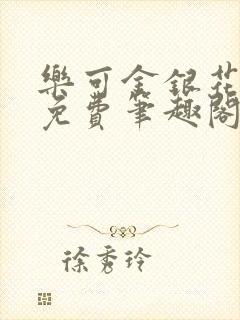 樂可金銀花
免費筆趣閣
徐秀玲